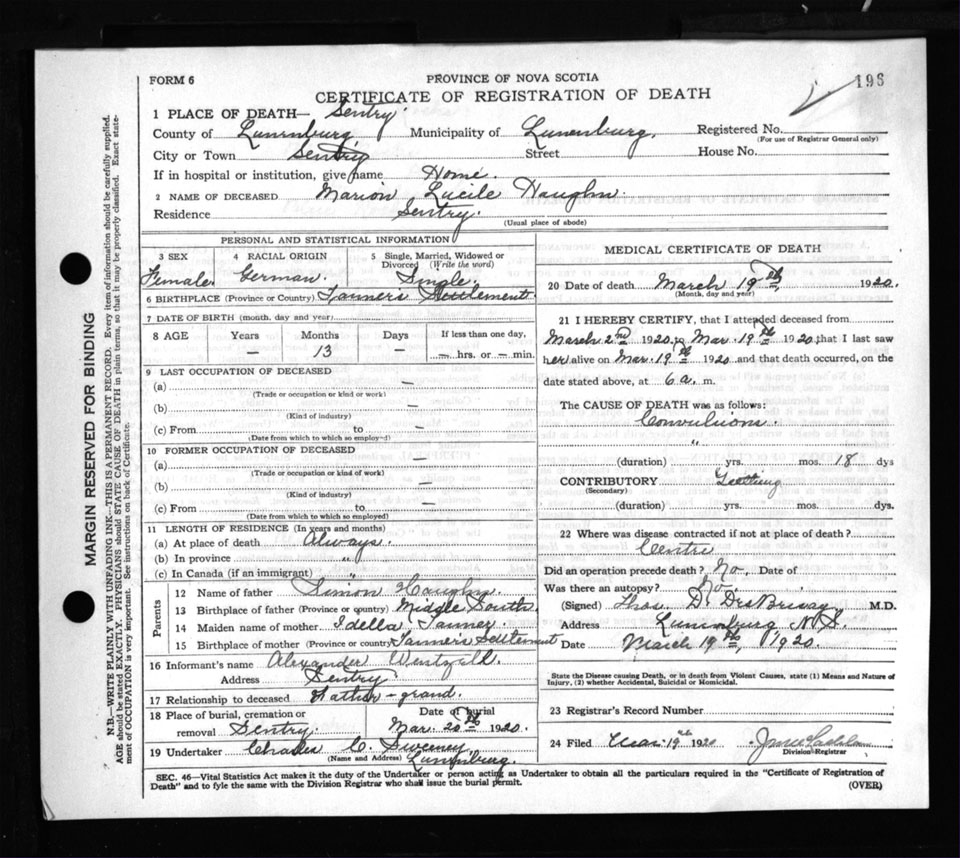 FORM 6
PROVINCE OF NOVA SCOTIA
196
CERTIFICATE OF REGISTRATION OF DEATH
1 PLACE OF DEATH— Sentry
County of Lunenburg Municipality of Lunenburg, Registered No.
(For use of Registrar General only)
City or Town Sentry Street House No.
If in hospital or institution, give name Home.
2 NAME OF DECEASED Marion Lucile Haughn.
Residence Sentry.
(Usual place of abode)
MARGIN RESERVED FOR BINDING
N.B.—WRITE PLAINLY WITH UNFADING INK—THIS IS A PERMANENT RECORD. Every item of information should be carefully supplied.
AGE should be stated EXACTLY. PHYSICIANS should STATE CAUSE OF DEATH in plain terms, so that it may be properly classified. Exact state-
ment of OCCUPATION is very important. See instructions on back of Certificate.
PERSONAL AND STATISTICAL INFORMATION
3 SEX 4 RACIAL ORIGIN 5 Single, Married, Widowed or
Divorced (Write the word)
Female. German. Single.
6 BIRTHPLACE (Province or Country) Tanners Settlement
7 DATE OF BIRTH (month, day and year)
8 AGE Years Months Days If less than one day,
— 13 — — hrs. or — min.
9 LAST OCCUPATION OF DECEASED
(a) —
(Trade or occupation or kind or work)
(b) —
(Kind of industry)
(c) From to —
(Date from which to which so employed)
10 FORMER OCCUPATION OF DECEASED
(a) —
(Trade or occupation or kind of work)
(b) —
(Kind of industry)
(c) From to —
(Date from which to which so employed)
11 LENGTH OF RESIDENCE (In years and months)
(a) At place of death Always.
(b) In province "
(c) In Canada (if an immigrant) "
Parents
12 Name of father Simon Haughn.
13 Birthplace of father (Province or country) Middle South.
14 Maiden name of mother Idella Tanner.
15 Birthplace of mother (Province or country) Tanners Settlement
16 Informant's name Alexander
Address Sentry
17 Relationship to deceased Father - grand.
18 Place of burial, cremation or Date of burial
removal Sentry Mar. 20th 1920.
19 Undertaker Charles C. Sweeney,
(Name and Address) Lunenburg.
MEDICAL CERTIFICATE OF DEATH
20 Date of death March 19th, 1920.
(Month, day and year)
21 I HEREBY CERTIFY, that I attended deceased from
March 2nd 1920 to Mar. 19th 1920 that I last saw
her alive on Mar. 19th 1920 and that death occurred, on the
date stated above, at 6 a. m.
The CAUSE OF DEATH was as follows:
Convulsions.
"
(duration) yrs. mos. 18 dys
CONTRIBUTORY Teething
(Secondary)
(duration) yrs. mos. dys.
22 Where was disease contracted if not at place of death?
Centre
Did an operation precede death? No. Date of
Was there an autopsy? No
(Signed) Thos. D. DesBrisay M.D.
Address Lunenburg N.S.
Date March 19th, 1920.
State the Disease causing Death, or in death from Violent Causes, state (1) Means and Nature of
Injury, (2) whether Accidental, Suicidal or Homicidal.
23 Registrar's Record Number
24 Filed Mar. 19th 1920
Division Registrar
SEC. 46—Vital Statistics Act makes it the duty of the Undertaker or person acting as Undertaker to obtain all the particulars required in the "Certificate of Registration of
Death" and to fyle the same with the Division Registrar who shall issue the burial permit. (OVER)